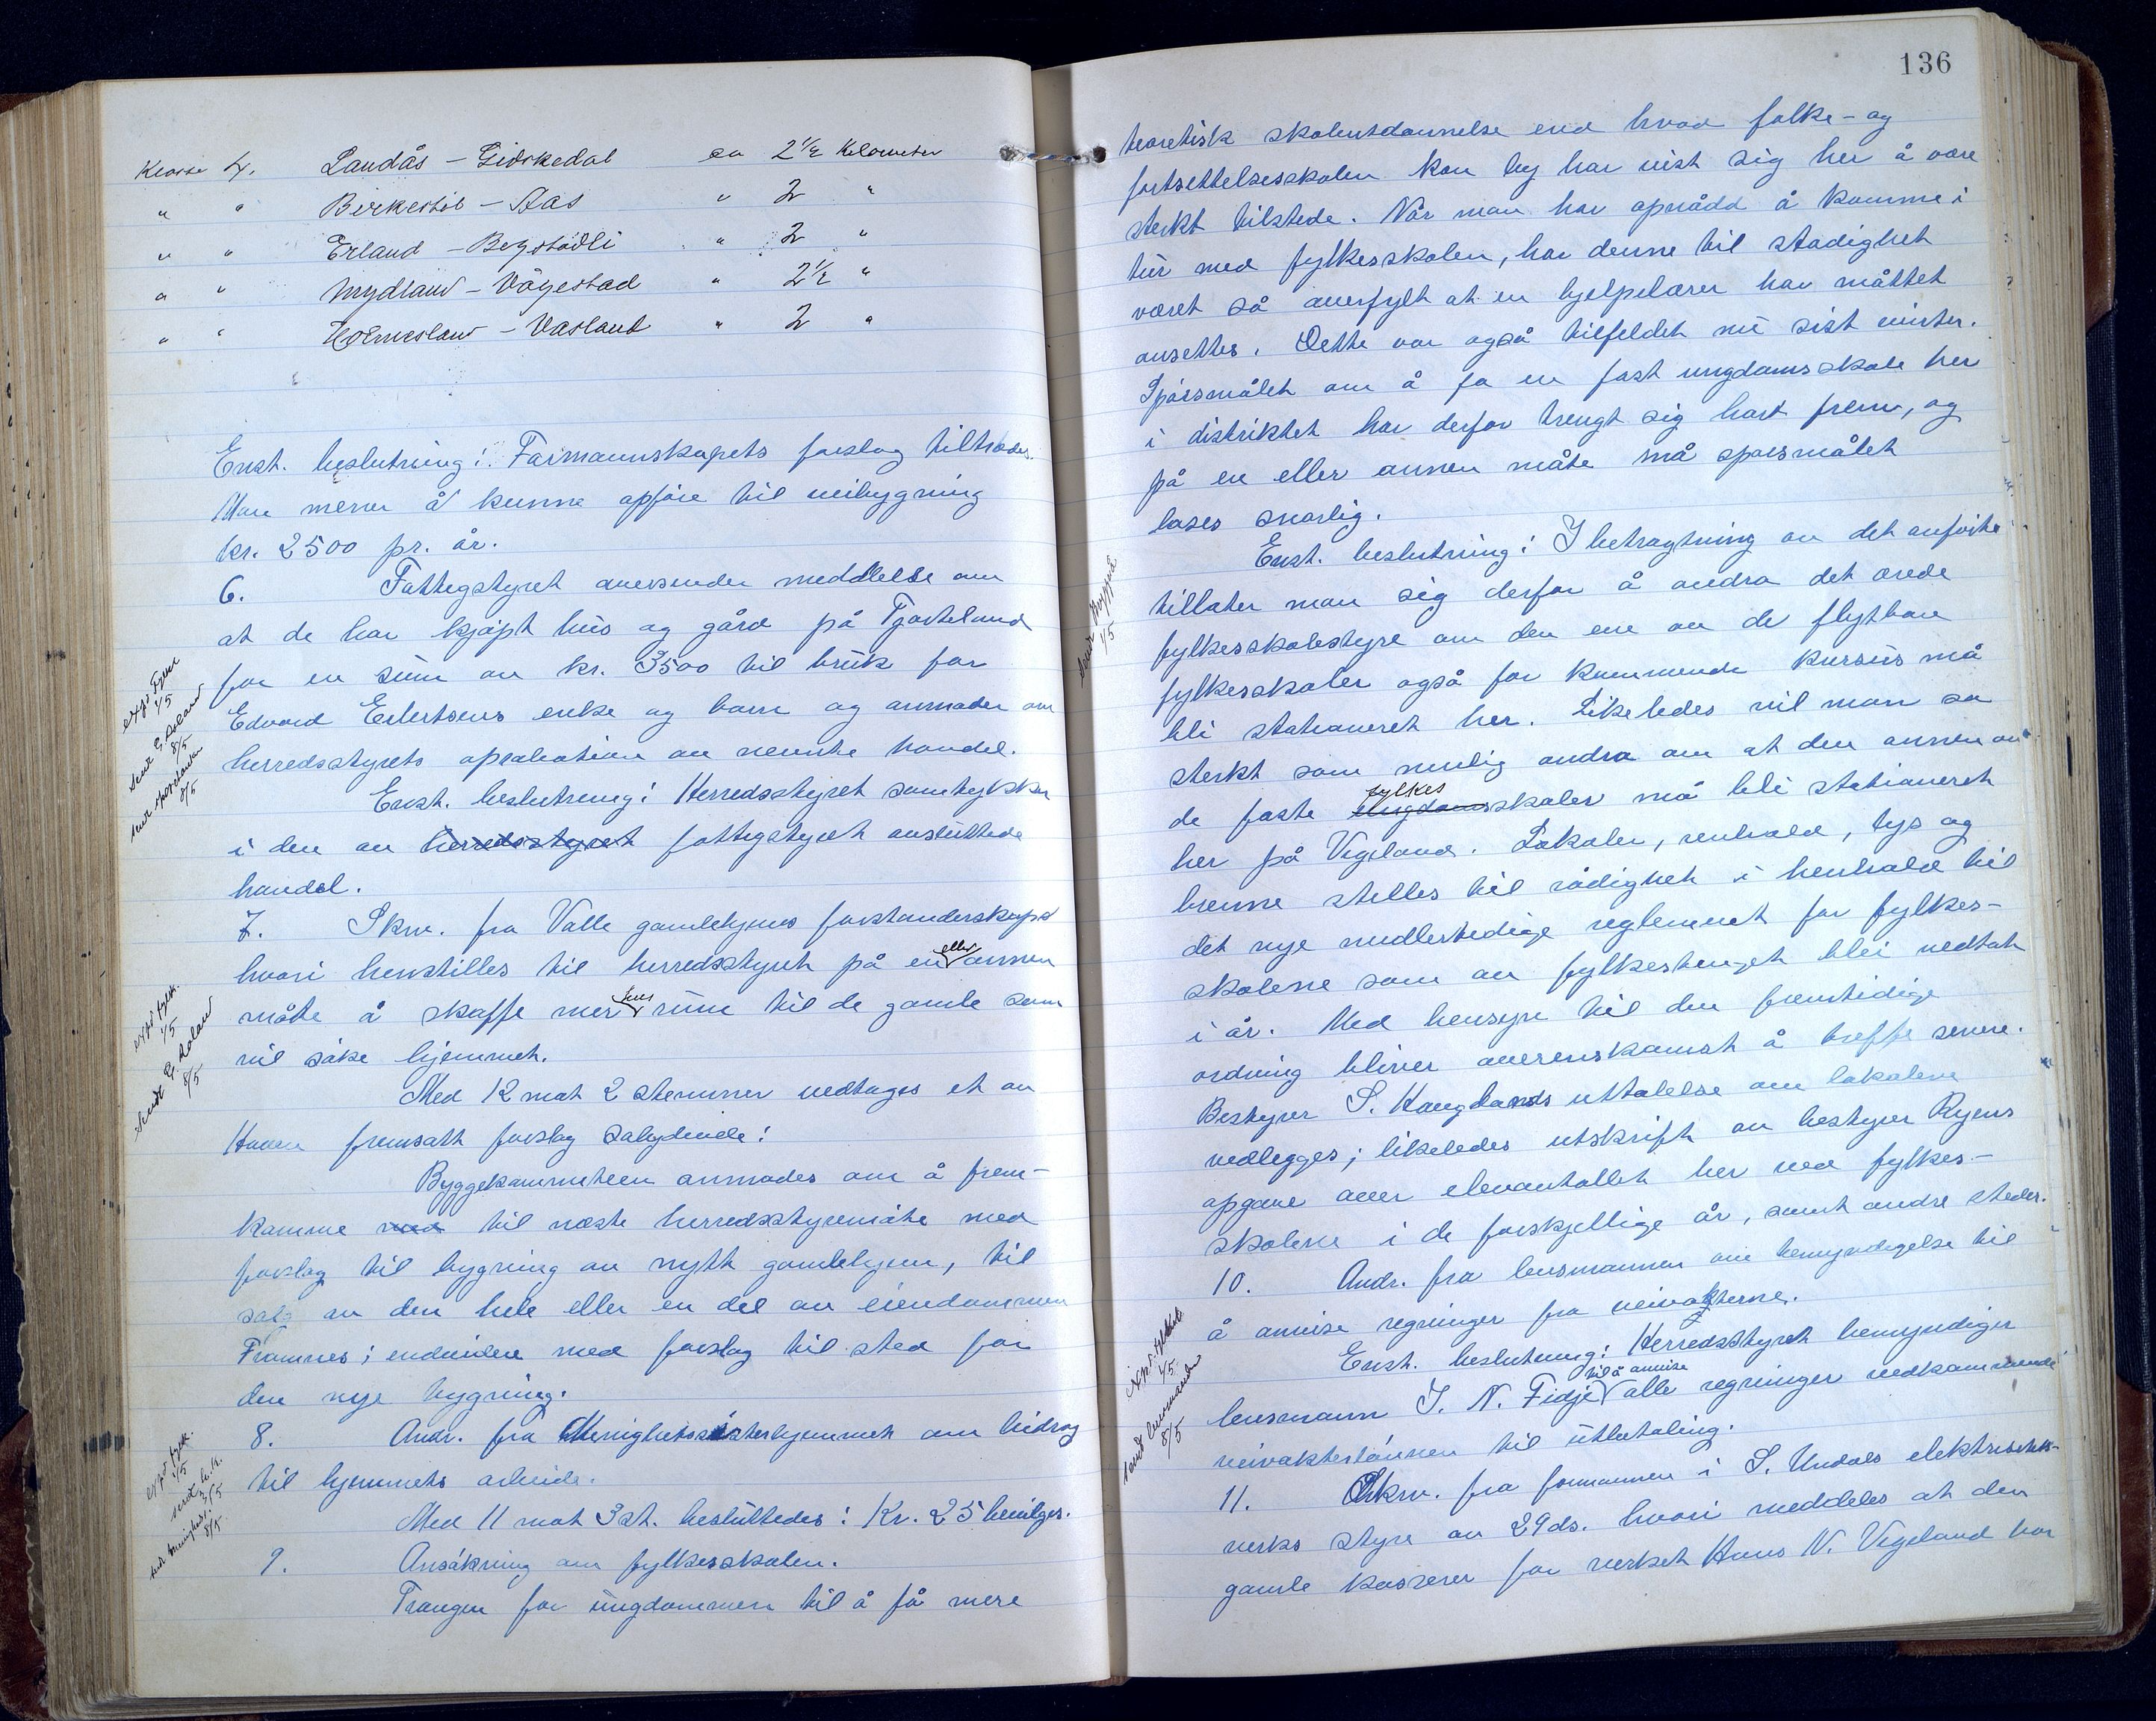 Klasse 4. Landås - Gidskedal ca 2½ Kilometer
" " Birkestøl - Aas " 2 "
" " Erland - Begstadli " 2 "
" " Mydland - Vågestad " 2½ "
" " Holmesland - Vasland " 2 "
Enst. beslutning: Formannskapets forslag tiltrædes.
Man mener å kunne opføre til veibygning
kr. 2500 pr. år.
6. Fattigstyret oversender meddelelse om
at de har kjøpt hus og gård på Tjorteland
for en sum av kr. 3500 til bruk for
Edvard Eilertsens enke og barn og anmoder om
herredsstyrets aprobation av nevnte handel.
Enst. beslutning: Herredsstyret samtykker
i den av herredsstyret fattigstyret avsluttede
handel.
7. Skriv. fra Valle gamlehjems forstanderskap
hvori henstilles til herredsstyret på en eller annen
måte å skaffe mer hus rum til de gamle som
vil søke hjemmet.
Med 12 mot 2 stemmer vedtages et av
Haaen fremsatt forslag sålydende:
Byggekommiteen anmodes om å frem-
komme med til næste herredsstyremøte med
forslag til bygning av nytt gamlehjem, til
salg av den hele eller en del av eiendommen
Framnes; endvidere med forslag til sted for
den nye bygning.
8. Andr. fra Menighetssøsterhjemmet om bidrag
til hjemmets arbeide.
Med 11 mot 3 st. besluttedes: Kr. 25 bevilges.
9. Ansøkning om fylkesskolen.
Trangen for ungdommen til å få mere
expd fylk.
1/5
Sendt G. Aaland
8/5
8/5
expd fylk.
1/5
Sendt G. Aaland
8/5
expd fylk.
1/5
8/5
136
teoretisk skoleutdannelse end hvad folke- og
fortsettelsesskolen kan by har vist sig her å være
sterkt tilstede. Når man har opnådd å komme i
tur med fylkesskolen, har denne til stadighet
været så overfylt at en hjelpelærer har måttet
ansettes. Dette var også tilfeldet nu sist vinter.
Spørsmålet om å få en fast ungdomsskole her
i distriktet har derfor trengt sig hart frem, og
på en eller annen måte må spørsmålet
løses snarlig.
Enst. beslutning: I betragtning av det anførte
tillater man sig derfor å andra det ærede
fylkesskolestyre om den ene av de flytbare
fylkesskoler også for kommende kursus må
bli stationeret her. Likeledes vil man så
sterkt som mulig andra om at den annen av
de faste ungdoms fylkes skoler må bli stationeret
her på Vigeland. Lokaler, renhold, lys og
brenne stilles til rådighet i henhold til
det nye midlertidige reglement for fylkes-
skolene som av fylkestinget blei vedtatt
i år. Med hensyn til den fremtidige
ordning bliver overenskomst å treffe senere.
Bestyrer S. Hauglands uttalelse om lokalene
vedlegges; likeledes utskrift av bestyrer Ryens
opgave over elevantallet her ved fylkes-
skolene i de forskjellige år, samt andre steder.
10. Andr. fra lensmannen om bemyndigelse til
å anvise regninger fra veivokterne.
Enst. beslutning: Herredsstyret bemyndiger
lensmann J. N. Fidje til å anvise alle regninger vedkommende
veivokterlønnen til utbetaling.
11. Skriv. fra formannen i S. Undals elektricitets-
verks styre av 29 ds. hvori meddeles at den
gamle kasserer for verket Hans N. Vigeland har
1/5
1/5
Sendt lensmannen
8/5